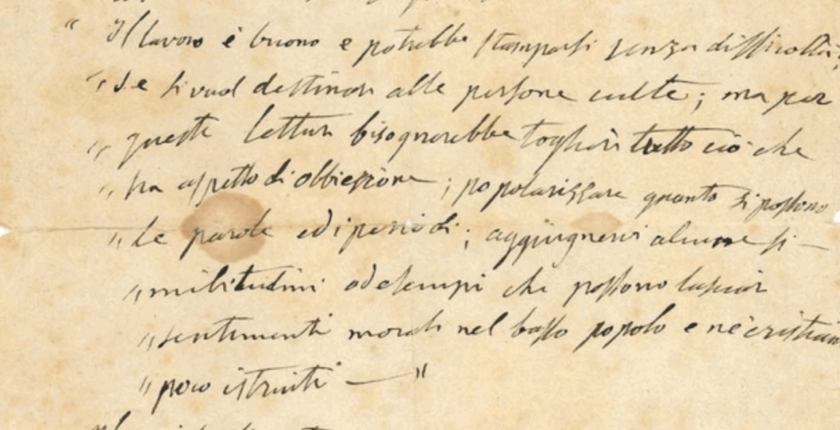 " Il lavoro è buono e potrebbe stamparsi senza difficoltà;
" se si vuol destinar alle persone culte; ma per
" queste letture bisognerebbe toglier tutto ciò che
" ha aspetto di obbiezione; popolarizzare quanto si possono
" le parole ed i periodi; aggiungnervi alcune si-
" militudini od esempi che possono lasciar
" sentimenti morali nel basso popolo e ne' cristiani
" poco istruiti — "